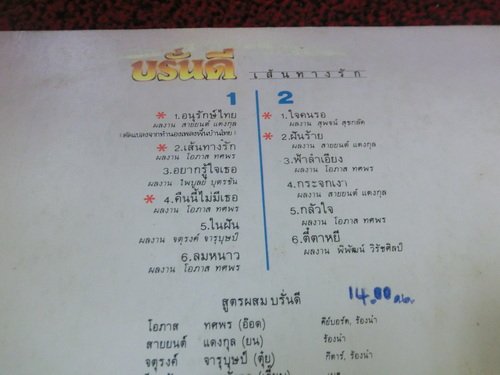 บรั่นดี
เส้นทางรัก
1
* 1.อนุรักษ์ไทย
ผลงาน สายยนต์ แดงกุล
(ดัดแปลงจากทำนองเพลงพื้นบ้านไทย)
* 2.เส้นทางรัก
ผลงาน โอภาส ทศพร
3.อยากรู้ใจเธอ
ผลงาน ไพบูลย์ บุตรขัน
* 4.คืนนี้ไม่มีเธอ
ผลงาน โอภาส ทศพร
5.ในฝัน
ผลงาน จตุรงค์ จารุบุษป์
6.ลมหนาว
ผลงาน โอภาส ทศพร
2
* 1.ใจคนรอ
ผลงาน สุพจน์ สุขกลัด
* 2.ฝันร้าย
ผลงาน สายยนต์ แดงกุล
3.ฟ้าลำเอียง
ผลงาน โอภาส ทศพร
4.กระจกเงา
ผลงาน สายยนต์ แดงกุล
5.กลัวใจ
ผลงาน โอภาส ทศพร
6.ตี๋ตาหยี
ผลงาน พิพัฒน์ วิรัชศิลป์
สูตรผสมบรั่นดี
14.00 ถล.
โอภาส ทศพร (อ๊อด) คีย์บอร์ด, ร้องนำ
สายยนต์ แดงกุล (ยน) ร้องนำ
จตุรงค์ จารุบุษป์ (ตุ๋ย) กีตาร์, ร้องนำ